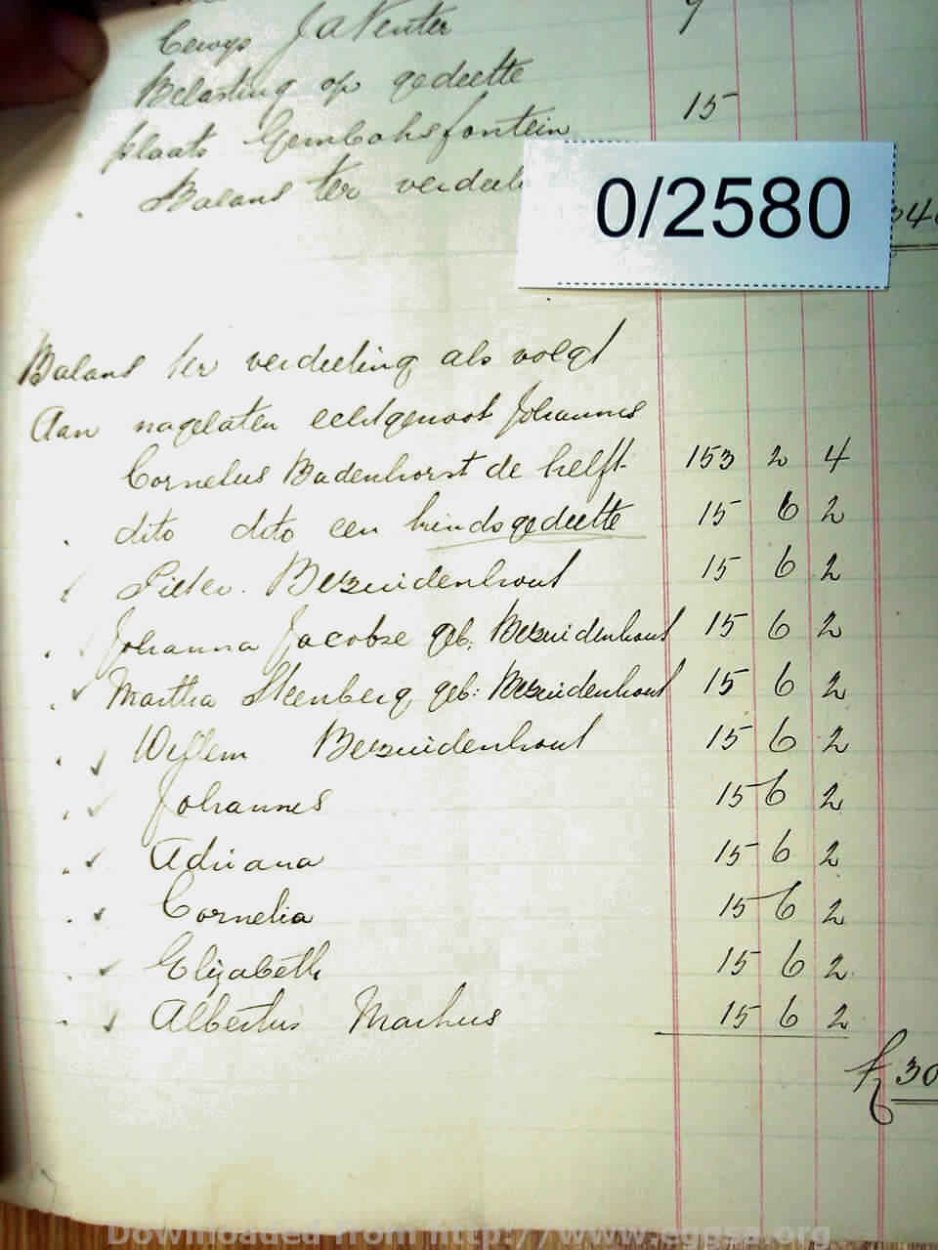 Bewys J a Venter 9
Belasting op gedeelte
plaats Gemboksfontein 15
Balans ter verdeel
0/2580
Balans ter verdeeling als volgt
Aan nagelaten echtgenoot Johannes
Cornelus Badenhorst de helft 153 2 4
dito dito een kindsgedeelte 15 6 2
Pieter Bezuidenhout 15 6 2
Johanna Jacobse geb: Bezuidenhout 15 6 2
Martha Steenberg geb: Bezuidenhout 15 6 2
Willem Bezuidenhout 15 6 2
Johannes 15 6 2
Adriana 15 6 2
Cornelia 15 6 2
Elizabeth 15 6 2
Albertus Markus 15 6 2
£ 30
Downloaded from http://www.eggsa.org